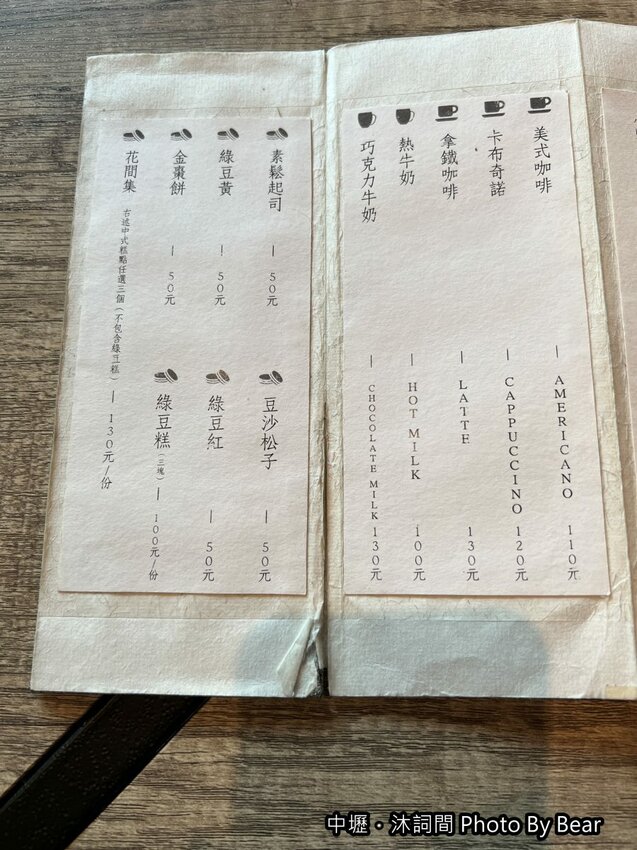 美式咖啡 — AMERICANO 110元
卡布奇諾 — CAPPUCCINO 120元
拿鐵咖啡 — LATTE 130元
熱牛奶 — HOT MILK 100元
巧克力牛奶 — CHOCOLATE MILK 130元
素鬆起司 — 50元
豆沙松子 — 50元
綠豆黃 — 50元
綠豆紅 — 50元
金棗餅 — 50元
綠豆糕(三塊) — 100元/份
花間集 右述中式糕點任選三個(不包含綠豆糕) — 130元/份
中壢・沐詞間 Photo By Bear